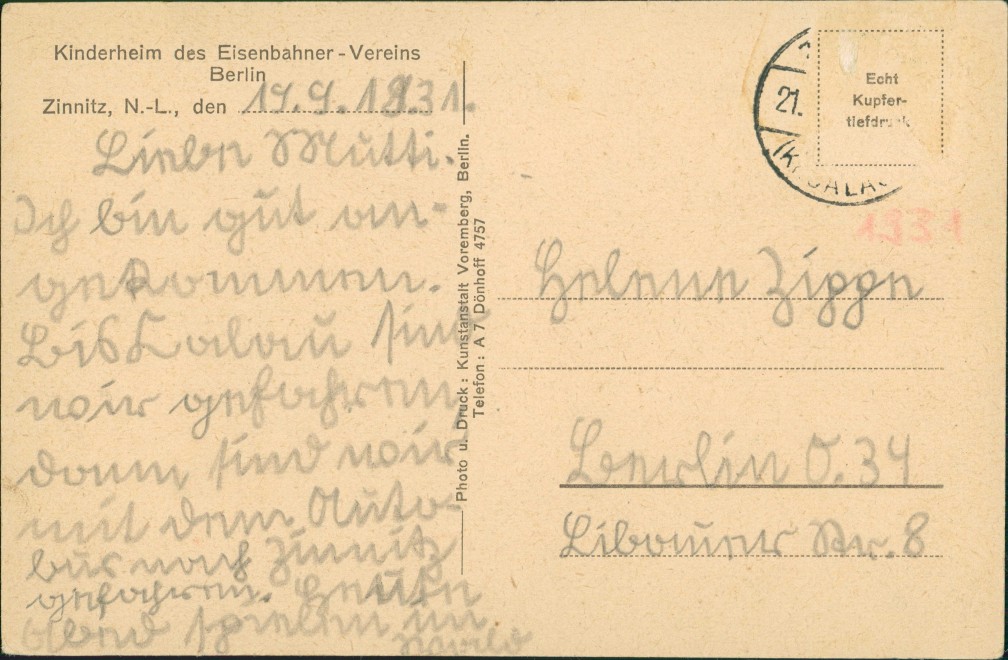 Kinderheim des Eisenbahner-Vereins
Berlin
Zinnitz, N.-L., den 19.9.1931.
Liebe Mutti.
Ich bin gut an-
gekommen.
Bis Calau sind
wir gefahren
dann sind wir
mit dem Auto-
bus nach Zinnitz
gefahren. Heute
Abend spielen im
Walde
Photo u. Druck: Kunstanstalt Voremberg, Berlin.
Telefon: A 7 Dönhoff 4757
21.
Echt
Kupfer-
tiefdruck
1931
Helene Zippe
Berlin O. 34
Libauer Str. 8